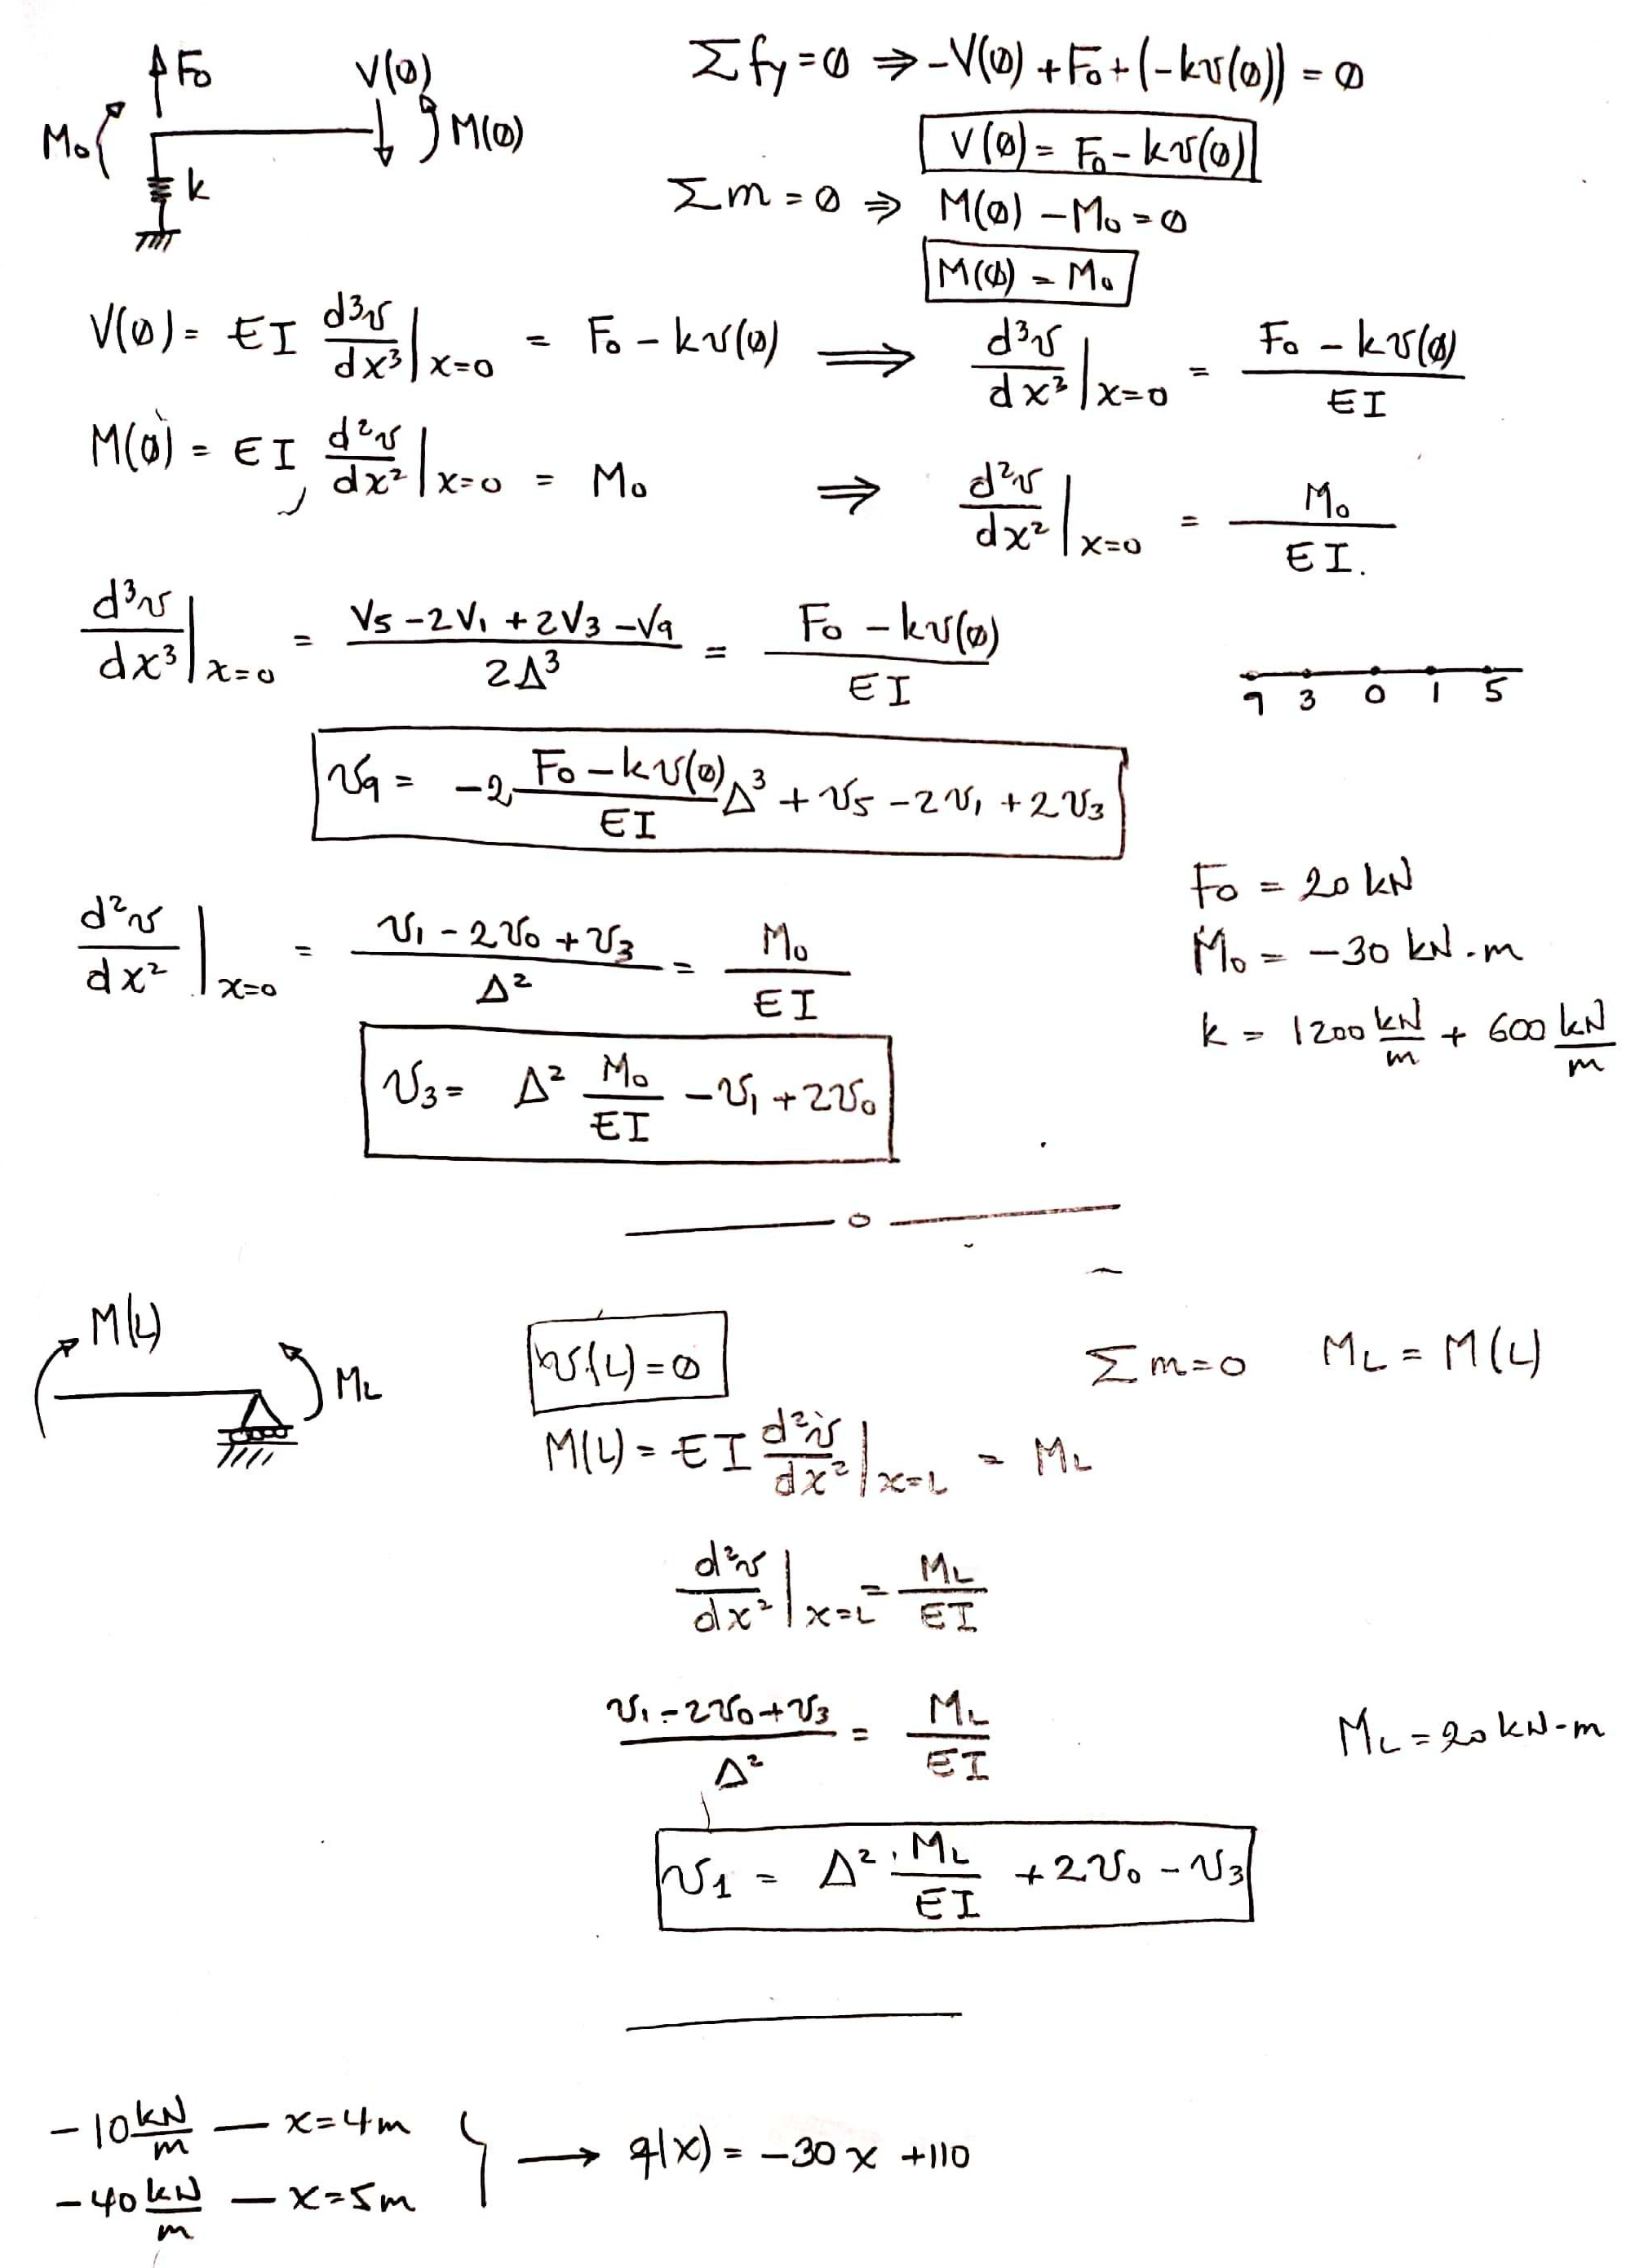 F₀ V(∅) Σfy=∅ ⇒ -V(∅)+F₀+(-kv(∅))=∅
M₀ M(∅) V(∅)= F₀-kv(∅)
k Σm=∅ ⇒ M(∅)-M₀=∅
M(∅)=M₀
V(∅)= EI d³v/dx³|x=0 = F₀-kv(∅) ⟹ d³v/dx³|x=0 = (F₀-kv(∅))/EI
M(∅)= EI d²v/dx²|x=0 = M₀ ⇒ d²v/dx²|x=0 = M₀/EI.
d³v/dx³|x=0 = (V₅-2V₁+2V₃-V₉)/2Δ³ = (F₀-kv(∅))/EI
9 3 0 1 5
v₉= -2 (F₀-kv(∅))/EI Δ³+v₅-2v₁+2v₃
F₀ = 20 kN
d²v/dx²|x=0 = (v₁-2v₀+v₃)/Δ² = M₀/EI
M₀ = -30 kN.m
k = 1200 kN/m + 600 kN/m
v₃= Δ² M₀/EI -v₁+2v₀
M(L) v(L)=∅ Σm=0 M_L = M(L)
M_L
M(L)= EI d²v/dx²|x=L = M_L
d²v/dx²|x=L = M_L/EI
(v₁-2v₀+v₃)/Δ² = M_L/EI M_L=20kN-m
v₁ = Δ².M_L/EI +2v₀-v₃
-10 kN/m — x=4m
-40 kN/m — x=5m } → q(x)= -30x +110